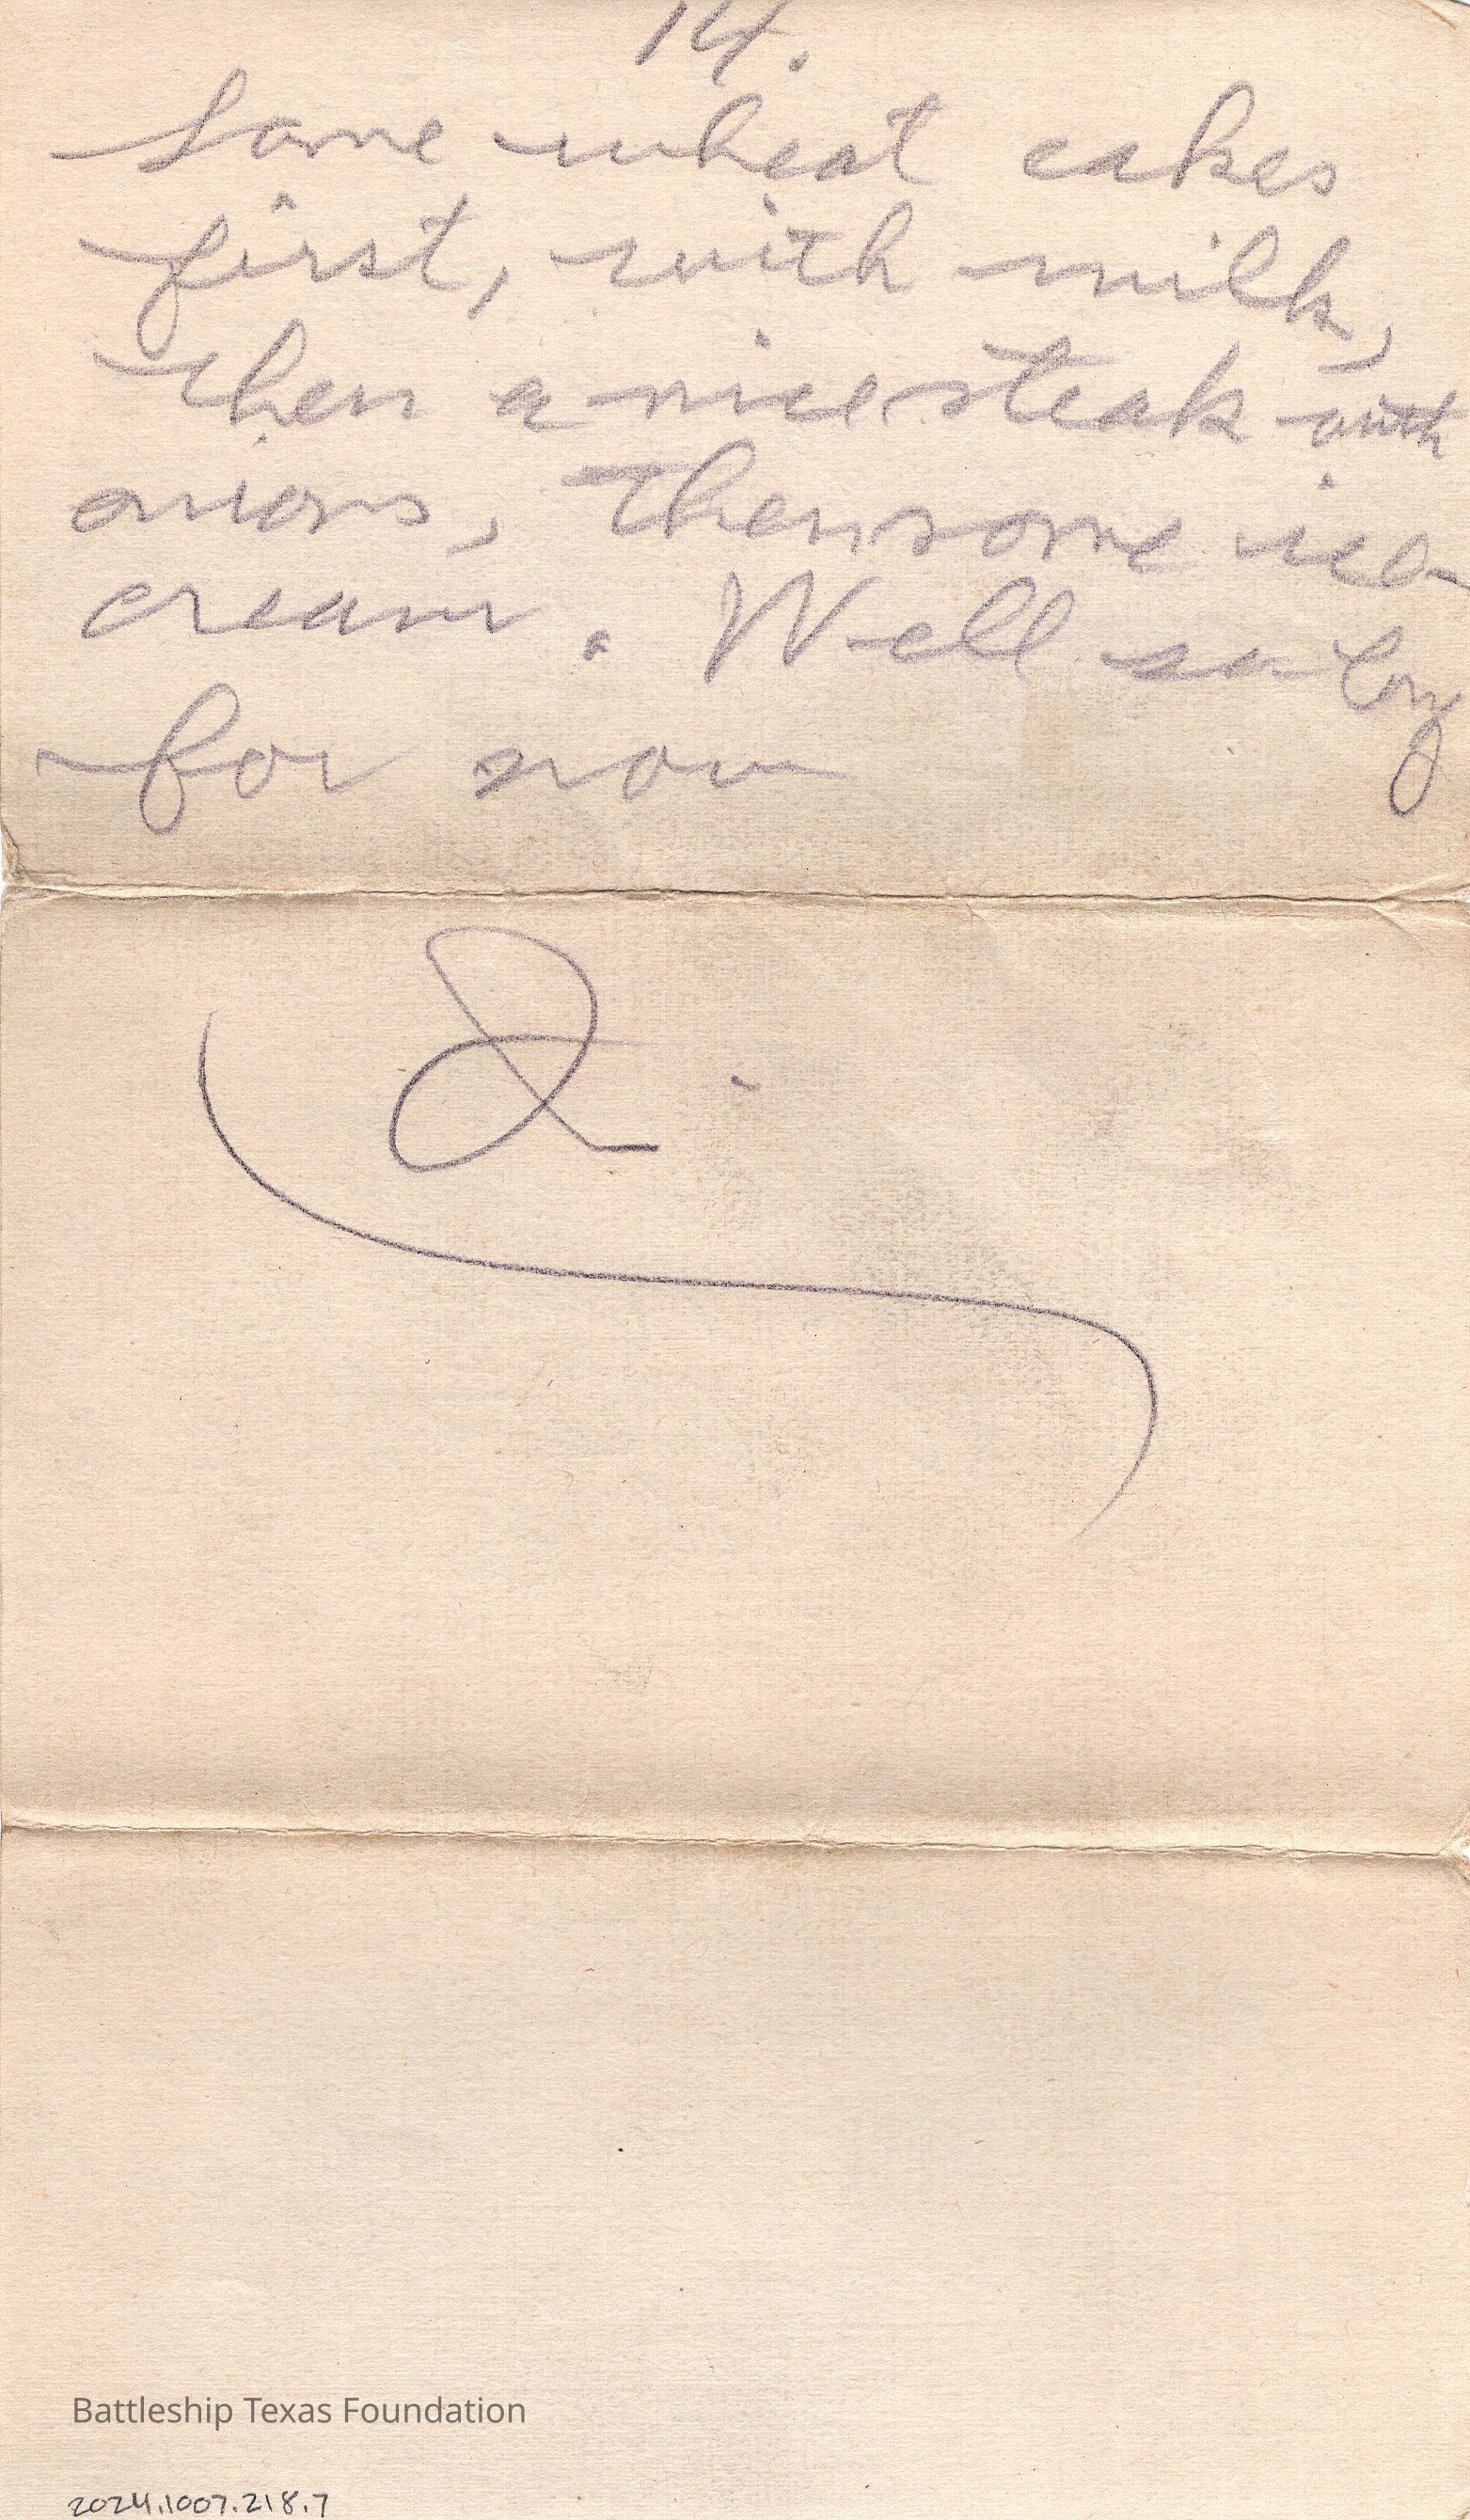 14.
Some wheat cakes
first, with milk,
then a nice steak with
onions, then some ice
cream. Well so long
for now
Battleship Texas Foundation
2024.1007.218.7